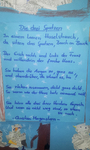 Die drei Spatzen
In einem leeren Haselstrauch,
da sitzen drei Spatzen, Bauch an Bauch.
Der Erich rechts und links der Franz
und mittendrin der freche Hans.
Sie haben die Augen zu, ganz zu,
und obendrüber, da schneit es, hu!
Sie rücken zusammen, dicht ganz dicht
so warm wie der Hans hat's niemand nicht.
Sie hör'n alle drei ihrer Herzlein Gepoch.
Und wenn sie nicht weg sind, so sitzen sie noch.
Christian Morgenstern